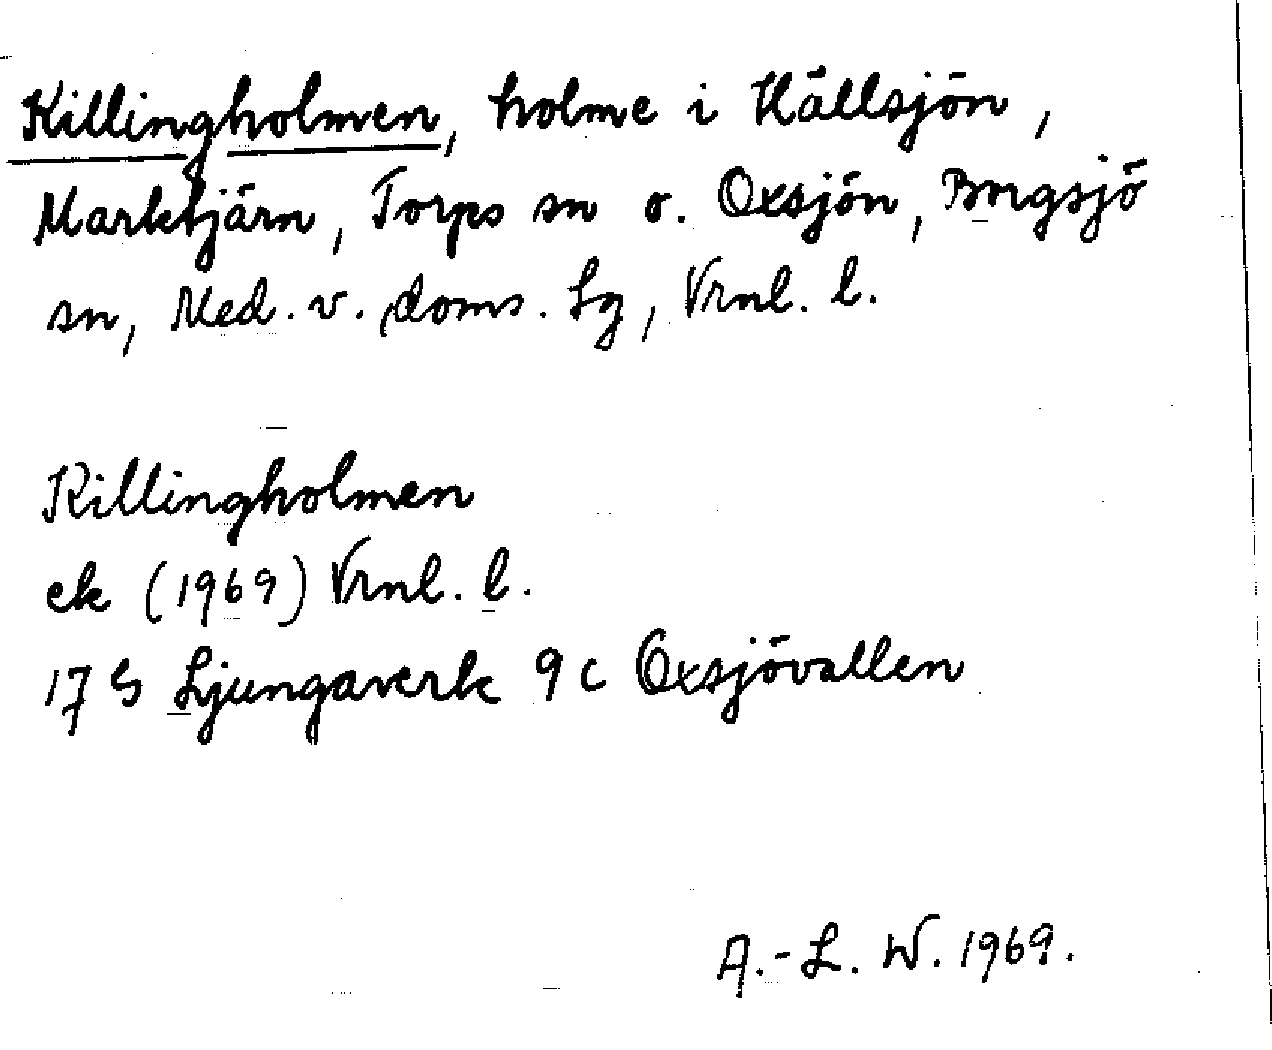 Killingholmen, holme i Hällsjön,
Marktjärn, Torps sn o. Oxsjön, Borgsjö
sn, Med. v. doms. Lg, Vrnl. l.
Killingholmen
ek (1969) Vrnl. l.
17 G Ljungaverk 9 c Oxsjövallen
A.-L. W. 1969.